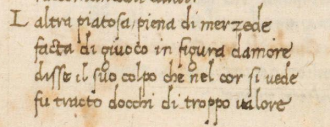 L altra piatosa piena di merzede
facta di giuoco in figura damore
disse il suo colpo che nel cor si vede
fu tracto docchi di troppo valore